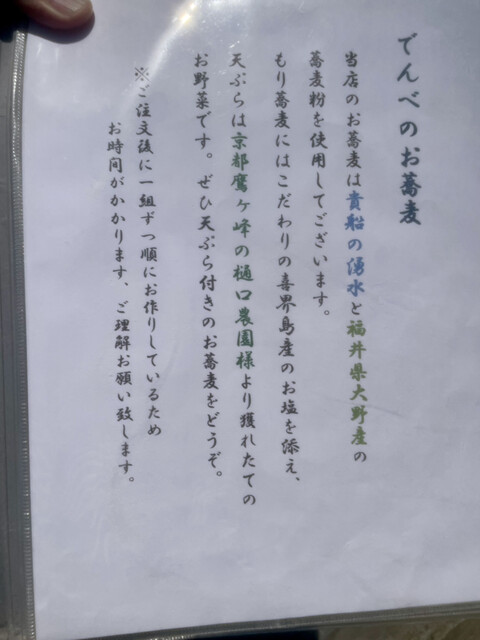 でんべのお蕎麦
当店のお蕎麦は貴船の湧水と福井県大野産の
蕎麦粉を使用してございます。
もり蕎麦にはこだわりの喜界島産のお塩を添え、
天ぷらは京都鷹ヶ峰の樋口農園様より獲れたての
お野菜です。ぜひ天ぷら付きのお蕎麦をどうぞ。
※ご注文後に一組ずつ順にお作りしているため
お時間がかかります、ご理解お願い致します。